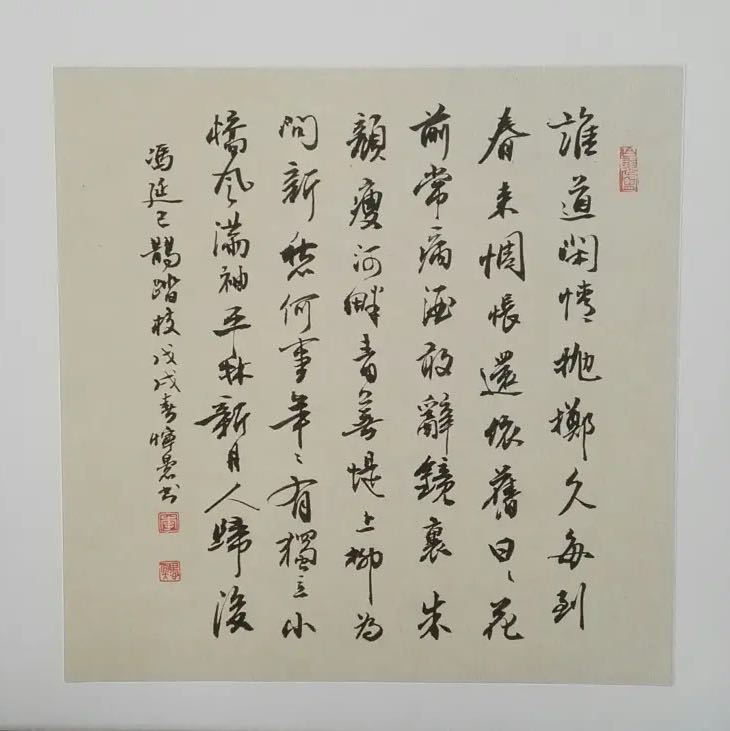 誰道閑情抛擲久每到
春来惆悵還依舊日々花
前常病酒敢辭鏡裏朱
顏瘦河畔青蕪堤上柳為
問新愁何事年々有獨立小
橋風滿袖平林新月人歸後
馮延巳鵲踏枝戊戌春书